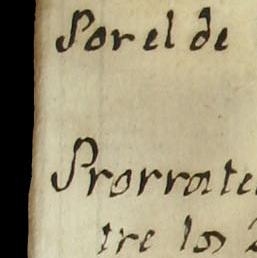 Por el de
Prorrate
tre los 2